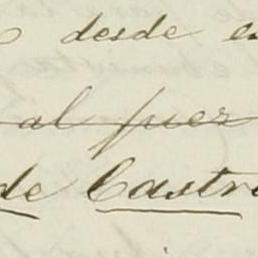 desde
al juez
de Castr